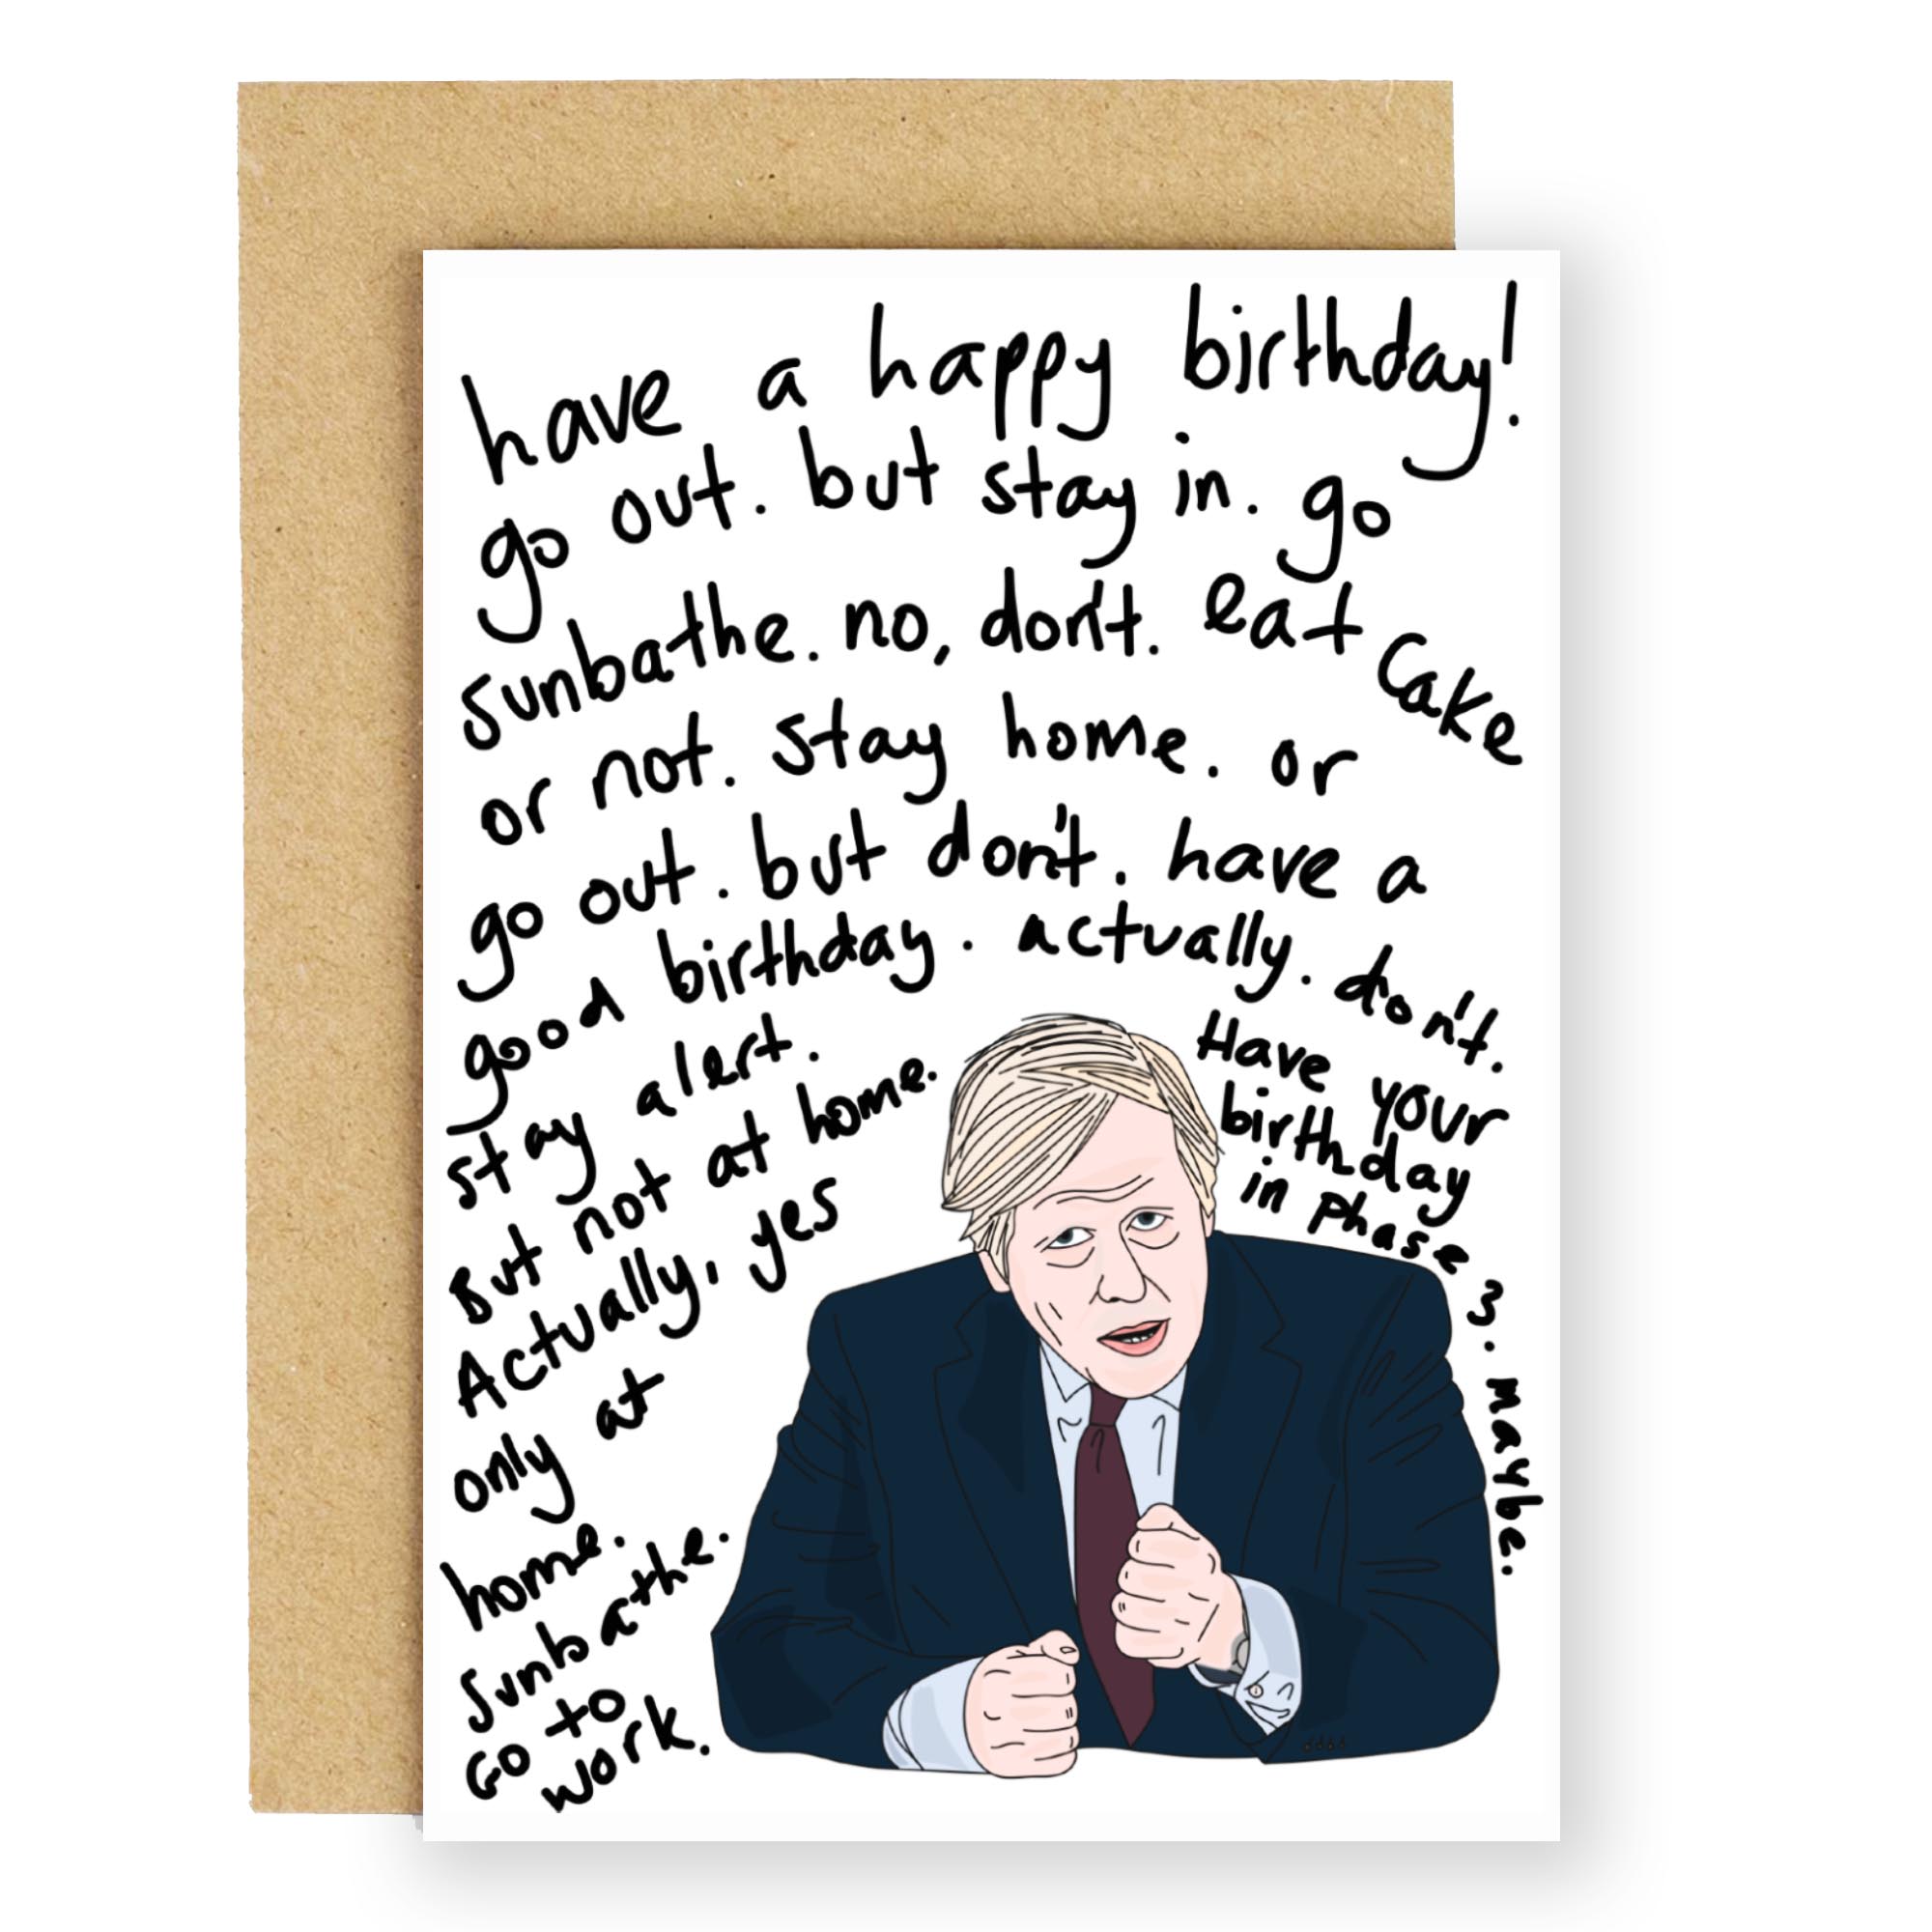 have a happy birthday!
go out. but stay in. go
sunbathe. no, don't. eat cake
or not. stay home. or
go out. but don't. have a
good birthday. actually. don't.
stay alert.
But not at home.
Actually, yes
only at
home.
sunbathe.
Go to
work.
Have your
birthday
in phase 3. maybe.